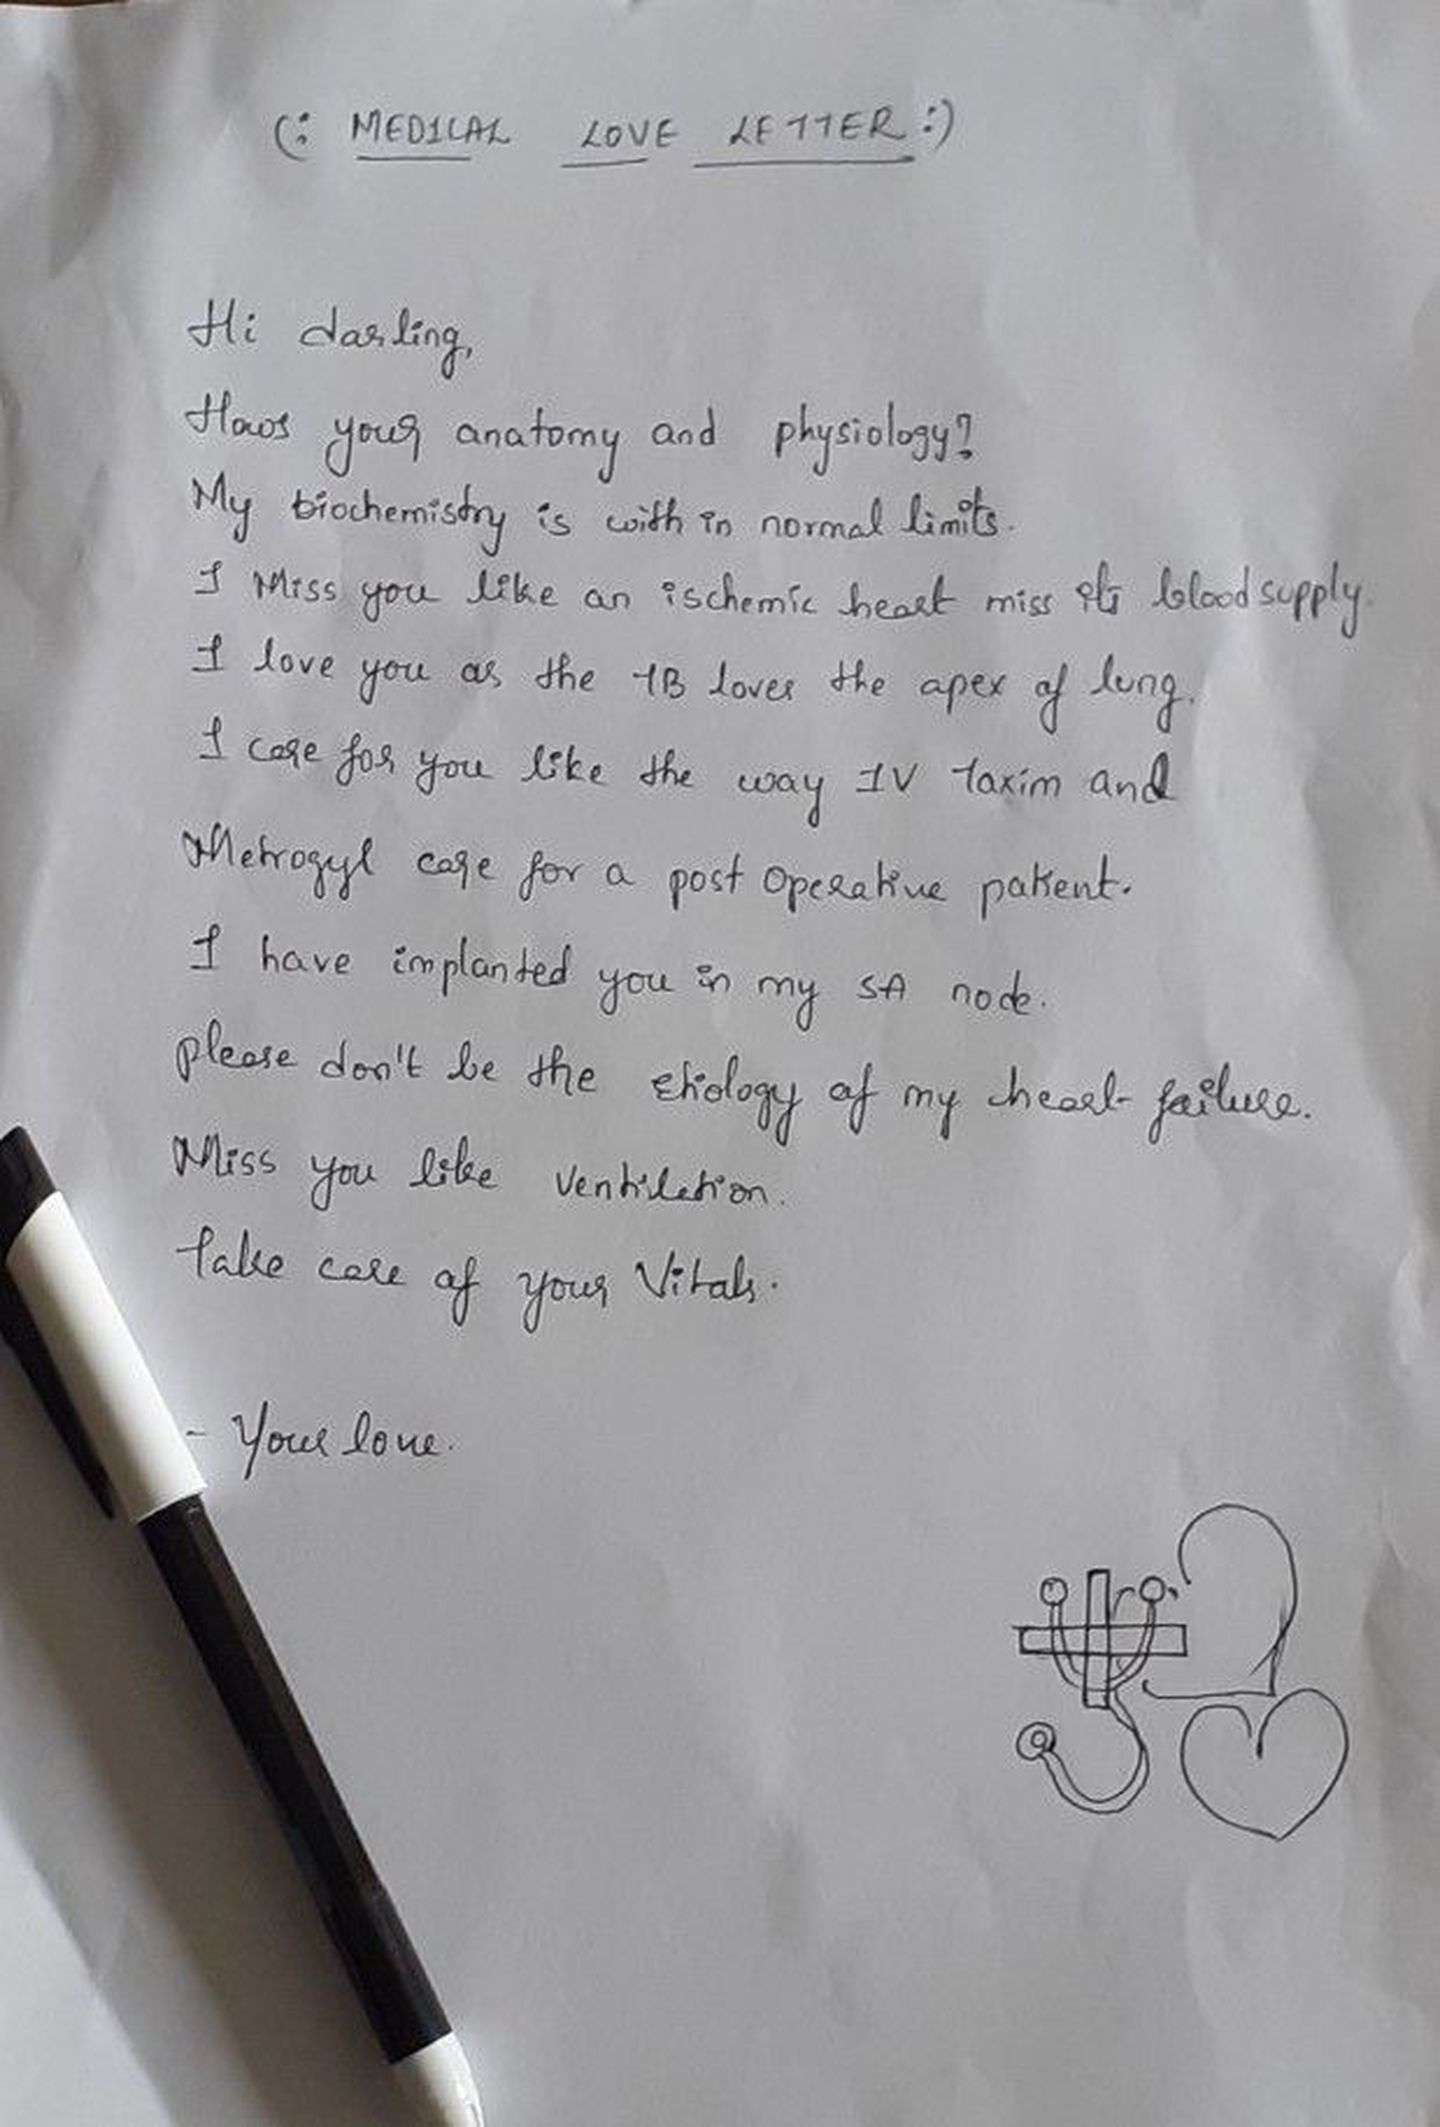 (: MEDICAL LOVE LETTER :)
Hi darling,
Hows your anatomy and physiology?
My biochemistry is with in normal limits.
I Miss you like an ischemic heart miss its blood supply.
I love you as the TB loves the apex of lung.
I care for you like the way IV Taxim and
Metrogyl care for a post operative patient.
I have implanted you in my SA node.
please don't be the etiology of my heart failure.
Miss you like ventilation.
Take care of your Vitals.
- Your love.